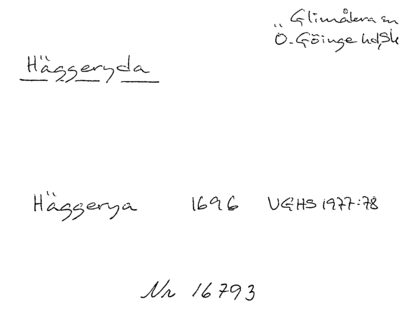 Glimåkra sn
Ö. Göinge hd, Sk
Häggeryda
Häggerya 1696 VGHS 1977:78
Nr 16793